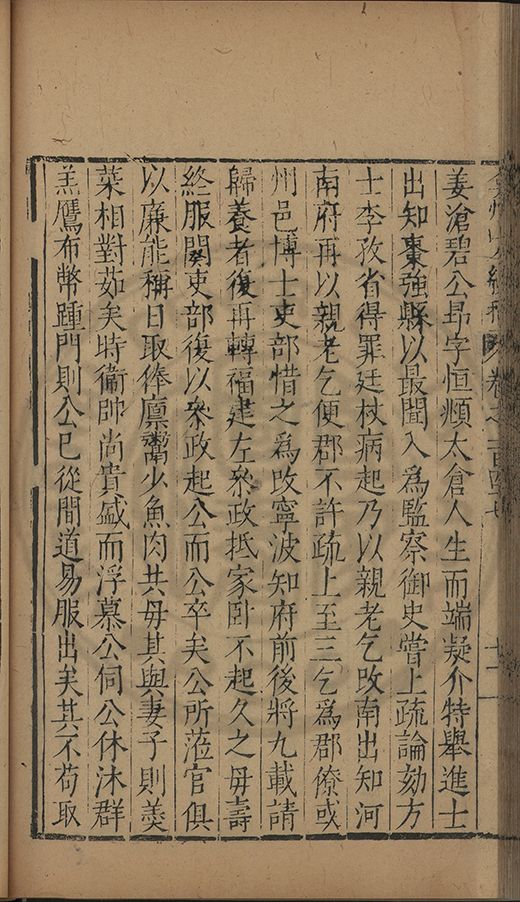 弇州山人續稿 卷之一百四十七 十一
姜滄碧公昂字恒頫太倉人生而端凝介特舉進士
出知棗強縣以最聞入為監察御史嘗上疏論劾方
士李孜省得罪廷杖病起乃以親老乞改南出知河
南府再以親老乞便郡不許疏上至三乞為郡僚或
州邑博士吏部惜之為改寧波知府前後將九載請
歸養者復再轉福建左叅政抵家臥不起久之毋壽
終服闋吏部復以叅政起公而公卒矣公所蒞官俱
以廉能稱日取俸廪鬻少魚肉共毋其與妻子則羹
菜相對茹矣時衞帥尚貴盛而浮慕公伺公休沐群
羔鴈布幣踵門則公已從間道易服出矣其不苟取